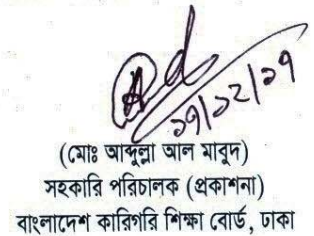 ১৭/১২/১৭
(মোঃ আব্দুল্লা আল মাবুদ)
সহকারি পরিচালক (প্রকাশনা)
বাংলাদেশ কারিগরি শিক্ষা বোর্ড, ঢাকা